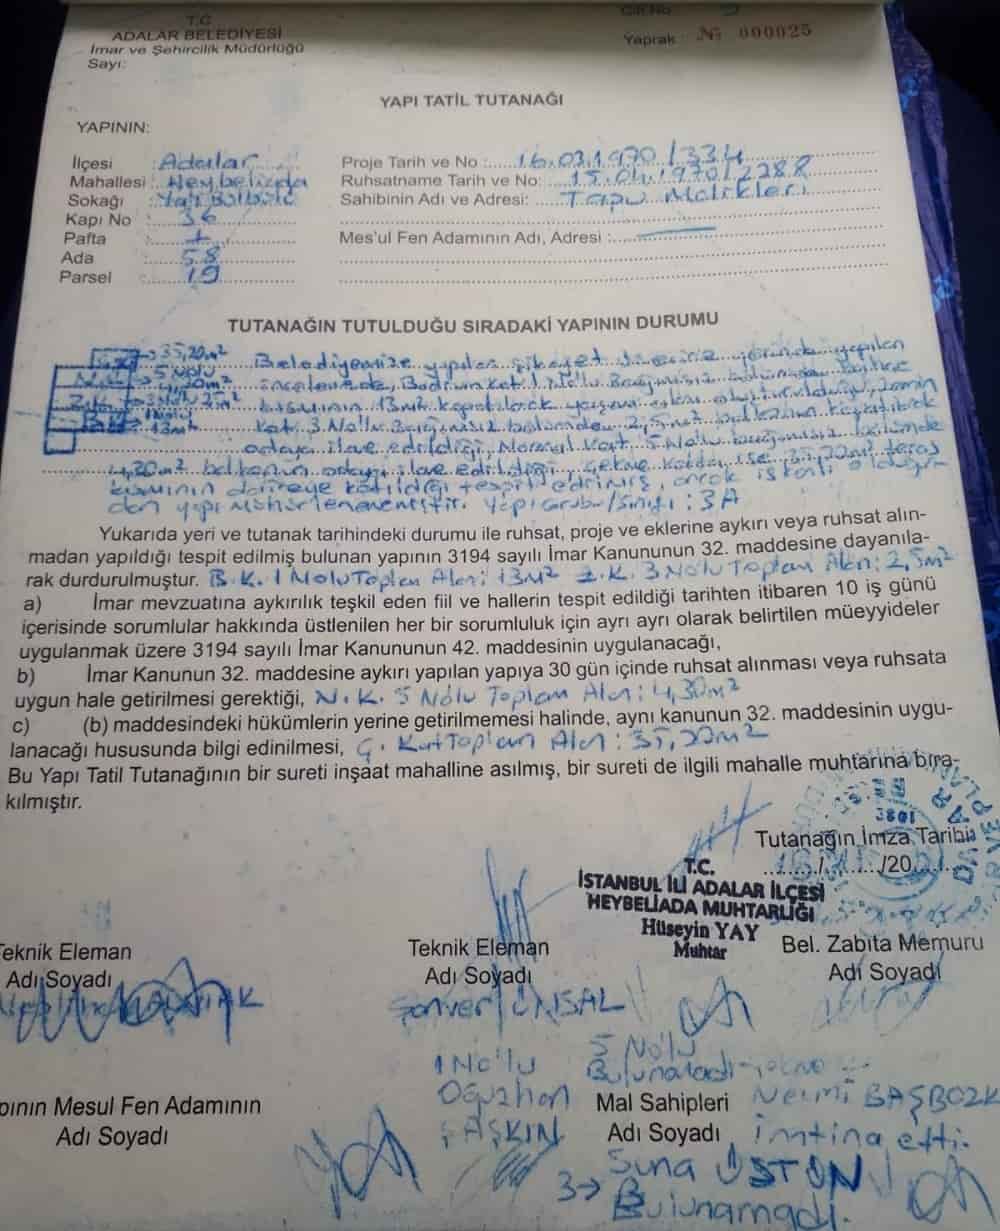 T.C.
ADALAR BELEDİYESİ
İmar ve Şehircilik Müdürlüğü
Sayı:
Cilt No
Yaprak : № 000025
YAPI TATİL TUTANAĞI
YAPININ:
İlçesi : Adalar
Mahallesi : Heybeliada
Sokağı :
Kapı No : 36
Pafta :
Ada : 58
Parsel : 19
Proje Tarih ve No : 16.03.1970/334
Ruhsatname Tarih ve No: 15.04.1970/2288
Sahibinin Adı ve Adresi: Tapu Malikleri
Mes'ul Fen Adamının Adı, Adresi :
TUTANAĞIN TUTULDUĞU SIRADAKİ YAPININ DURUMU
35,20m²
5 Nolu
4,30m²
3 Nolu
13m²
Belediyemize yapılan şikayet üzerine yerinde yapılan
incelemede, Bodrum kat 1 Nolu Bağımsız bölümden bahçe
kısmının 13m² kapatılarak yaşam alanı oluşturulduğu, zemin
kat 3 Nolu Bağımsız bölümden 2,5m² balkonun kapatılarak
odaya ilave edildiği, Normal kat 5 Nolu bağımsız bölümde
4,30m² balkonun odaya ilave edildiği, çekme katta ise 35,20m² teras
kısmının daireye katıldığı tespit edilmiş, ancak iskanlı olduğun-
dan yapı mühürlenememiştir. Yapı Grubu/Sınıfı: 3A
Yukarıda yeri ve tutanak tarihindeki durumu ile ruhsat, proje ve eklerine aykırı veya ruhsat alın-
madan yapıldığı tespit edilmiş bulunan yapının 3194 sayılı İmar Kanununun 32. maddesine dayanıla-
rak durdurulmuştur. B.K. 1 Nolu Toplam Alan: 13m² Z.K. 3 Nolu Toplam Alan: 2,5m²
a) İmar mevzuatına aykırılık teşkil eden fiil ve hallerin tespit edildiği tarihten itibaren 10 iş günü
içerisinde sorumlular hakkında üstlenilen her bir sorumluluk için ayrı ayrı olarak belirtilen müeyyideler
uygulanmak üzere 3194 sayılı İmar Kanununun 42. maddesinin uygulanacağı,
b) İmar Kanunun 32. maddesine aykırı yapılan yapıya 30 gün içinde ruhsat alınması veya ruhsata
uygun hale getirilmesi gerektiği, N.K. 5 Nolu Toplam Alan: 4,30m²
c) (b) maddesindeki hükümlerin yerine getirilmemesi halinde, aynı kanunun 32. maddesinin uygu-
lanacağı hususunda bilgi edinilmesi, Ç. Kat Toplam Alan: 35,20m²
Bu Yapı Tatil Tutanağının bir sureti inşaat mahalline asılmış, bir sureti de ilgili mahalle muhtarına bıra-
kılmıştır.
Tutanağın İmza Tarihi
/20
T.C.
İSTANBUL İLİ ADALAR İLÇESİ
HEYBELİADA MUHTARLIĞI
Hüseyin YAY
Muhtar
Teknik Eleman
Adı Soyadı
Teknik Eleman
Adı Soyadı
ÜNSAL
Bel. Zabıta Memuru
Adı Soyadı
pının Mesul Fen Adamının
Adı Soyadı
1 No'lu
Oğuzhan
ŞAŞKIN
5 No'lu
Bulunamadı
Mal Sahipleri
Adı Soyadı
Necmi BAŞBOZK
imtina etti.
3→ Suna ÜSTÜN
Bulunamadı.